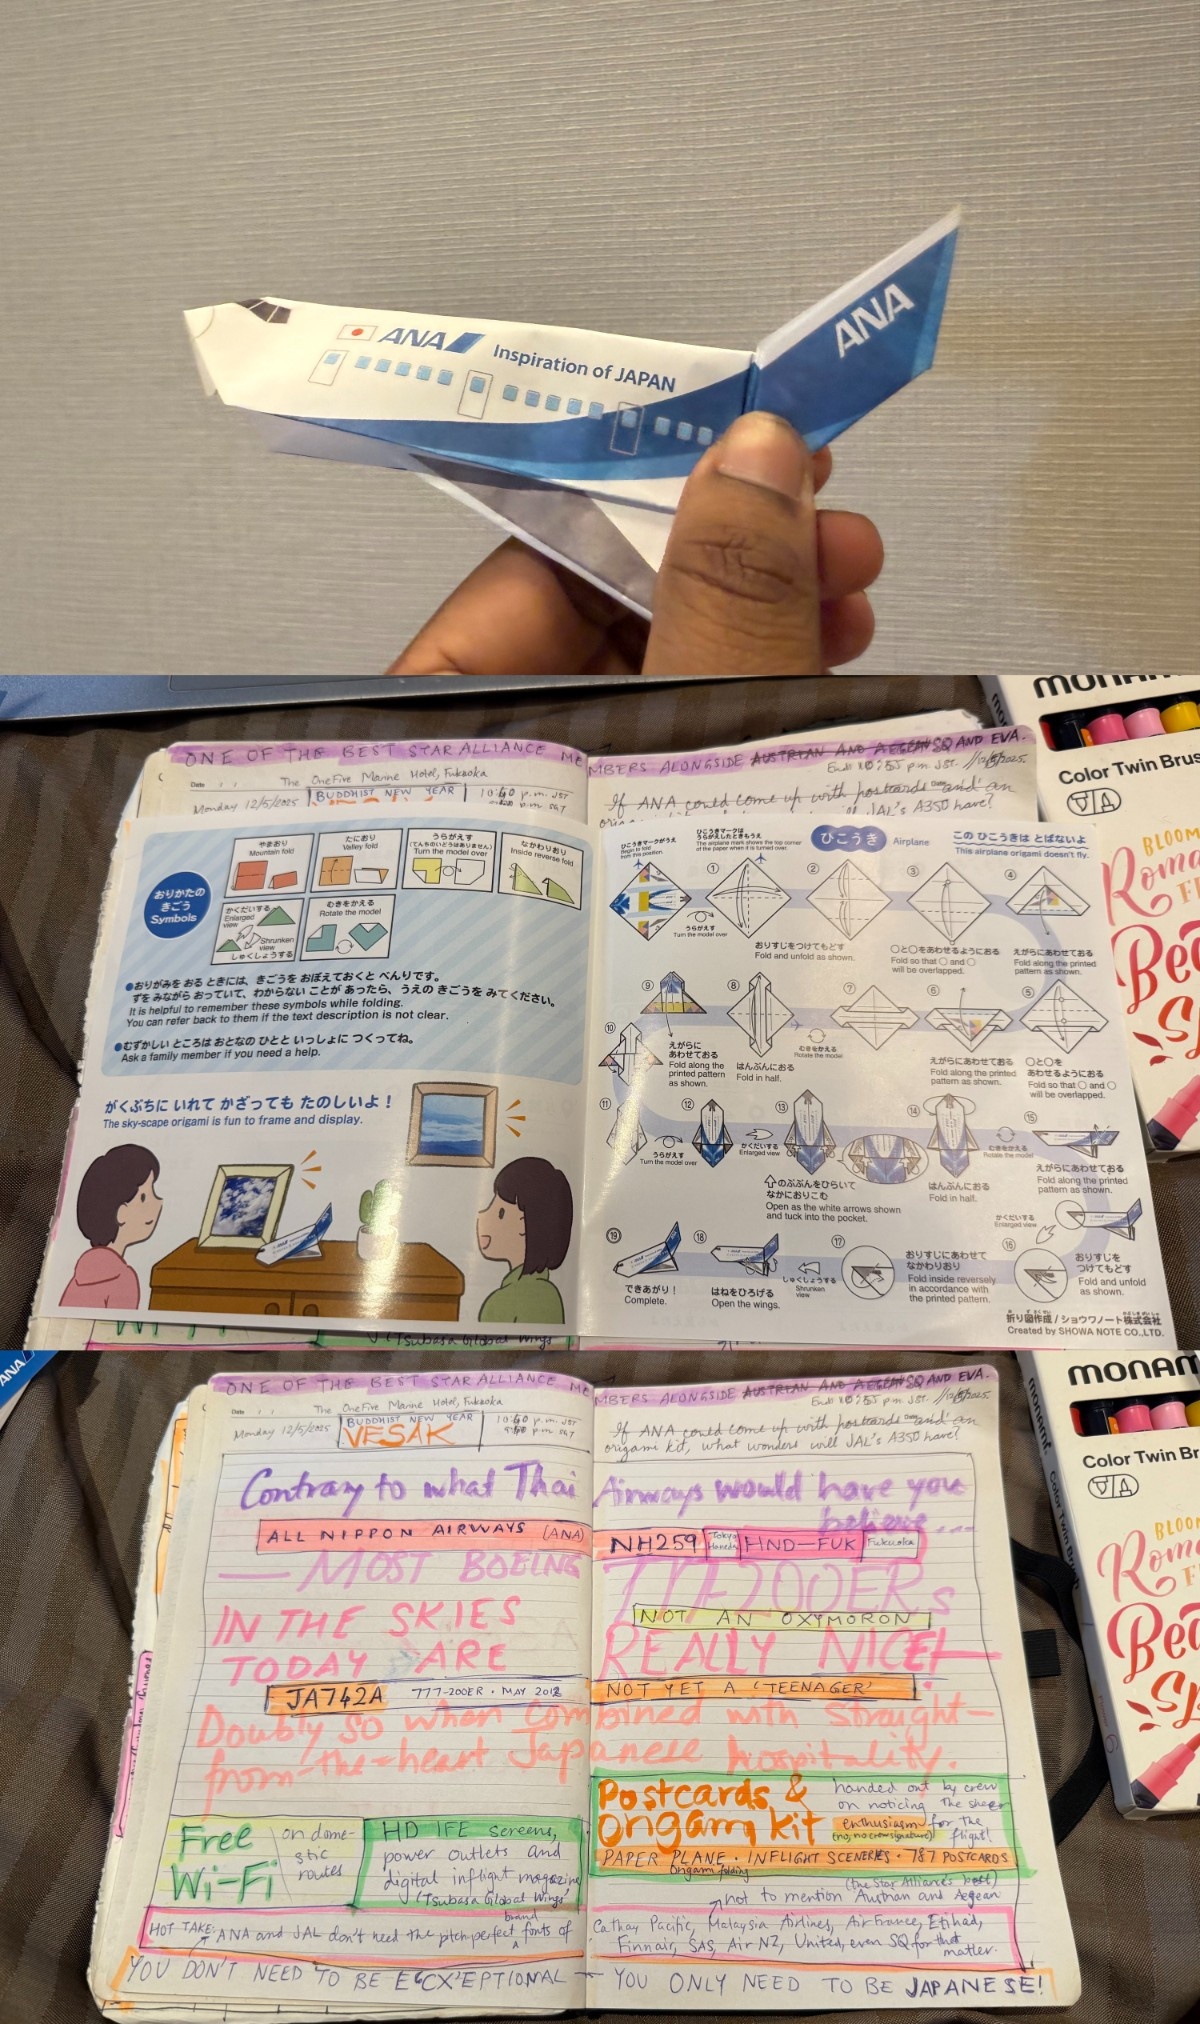 ANA
Inspiration of JAPAN
ANA
MONAMI
Color Twin Brus
BLOOM
Roma
Bea
ONE OF THE BEST STAR ALLIANCE MEMBERS ALONGSIDE AUSTRIAN AND AEGEAN SQ AND EVA.
Date
The OneFive Marine Hotel, Fukuoka
Monday 12/5/2025
BUDDHIST NEW YEAR
If ANA could come up with postcards and an
JAL's A350 have?
おりかたの
きごう
Symbols
やまおり
Mountain fold
たにおり
Valley fold
うらがえす
(てんちのいどうはありません)
Turn the model over
なかわりおり
Inside reverse fold
かくだいする
Enlarged view
Shrunken view
しゅくしょうする
むきをかえる
Rotate the model
●おりがみを おる ときには、きごうを おぼえておくと べんりです。
ずを みながら おっていて、わからない ことが あったら、うえの きごうを みてください。
It is helpful to remember these symbols while folding.
You can refer back to them if the text description is not clear.
●むずかしい ところは おとなの ひとと いっしょに つくってね。
Ask a family member if you need a help.
がくぶちに いれて かざっても たのしいよ！
The sky-scape origami is fun to frame and display.
ひこうき
Airplane
この ひこうきは とばないよ
This airplane origami doesn't fly.
ひこうきマークがうえ
Begin to fold from this position.
ひこうきマークは
うらがえしたときもうえ
The airplane mark shows the top corner
of the paper when it is turned over.
①
②
③
④
うらがえす
Turn the model over
おりすじをつけてもどす
Fold and unfold as shown.
○と○をあわせるようにおる
Fold so that ○ and ○
will be overlapped.
えがらにあわせておる
Fold along the printed
pattern as shown.
⑨
⑧
⑦
⑥
⑤
えがらに
あわせておる
Fold along the
printed pattern
as shown.
はんぶんにおる
Fold in half.
むきをかえる
Rotate the model
えがらにあわせておる
Fold along the printed
pattern as shown.
○と○を
あわせるようにおる
Fold so that ○ and ○
will be overlapped.
⑩
⑪
⑫
⑬
⑭
⑮
うらがえす
Turn the model over
かくだいする
Enlarged view
のぶぶんをひらいて
なかにおりこむ
Open as the white arrows shown
and tuck into the pocket.
はんぶんにおる
Fold in half.
むきをかえる
Rotate the model
えがらにあわせておる
Fold along the printed
pattern as shown.
かくだいする
Enlarged view
⑲
⑱
⑰
⑯
できあがり！
Complete.
はねをひろげる
Open the wings.
しゅくしょうする
Shrunken view
おりすじにあわせて
なかわりおり
Fold inside reversely
in accordance with
the printed pattern.
おりすじを
つけてもどす
Fold and unfold
as shown.
折り図作成 / ショウワノート株式会社
Created by SHOWA NOTE CO.,LTD.
(Tsubasa Global Wings
ANA
MONAMI
Color Twin Br
BLOO
Roma
Bea
ONE OF THE BEST STAR ALLIANCE MEMBERS ALONGSIDE AUSTRIAN AND AEGEAN SQ AND EVA.
Date
The OneFive Marine Hotel, Fukuoka
Monday 12/5/2025
BUDDHIST NEW YEAR
VESAK
If ANA could come up with postcards and an
origami kit, what wonders will JAL's A350 have?
Contrary to what Thai Airways would have you
believe...
ALL NIPPON AIRWAYS (ANA) NH259 Tokyo Haneda HND-FUK Fukuoka
— MOST BOEING 777-200ERs
NOT AN OXYMORON
IN THE SKIES
TODAY ARE REALLY NICE!
JA742A 777-200ER • MAY 2012 NOT YET A 'TEENAGER'
Doubly so when combined with straight-
from-the-heart Japanese hospitality.
Postcards &
Origami kit
handed out by crew
on noticing the sheer
enthusiasm for the
flight!
(no, no crew signature)
PAPER PLANE • INFLIGHT SCENERIES • 787 POSTCARDS
origami folding
Free
Wi-Fi
on dome-
stic
routes
HD IFE screens,
power outlets and
digital inflight magazine
('Tsubasa Global Wings'
(the Star Alliance's best)
not to mention Austrian and Aegean
HOT TAKE: ANA and JAL don't need the pitch-perfect brand fonts of
Cathay Pacific, Malaysia Airlines, Air France, Etihad,
Finnair, SAS, Air NZ, United, even SQ for that
matter.
YOU DON'T NEED TO BE EXCEPTIONAL — YOU ONLY NEED TO BE JAPANESE!